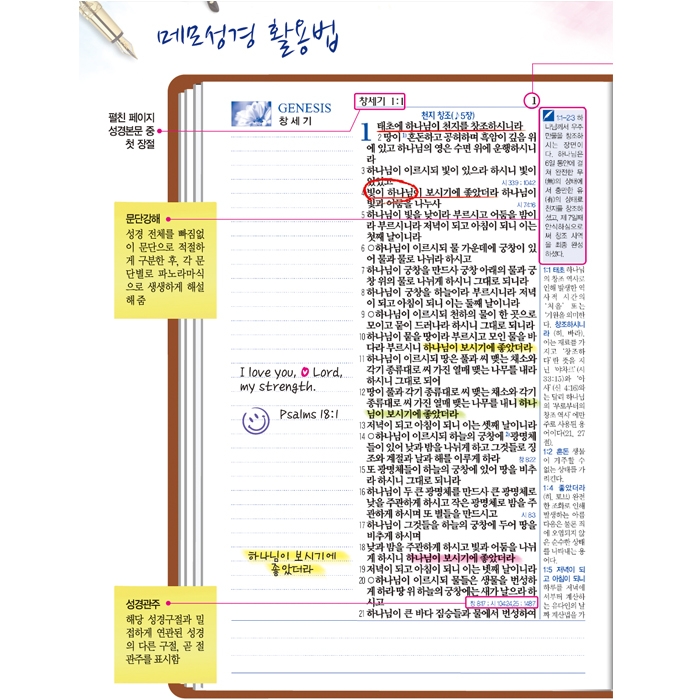 메모성경 활용법
펼친 페이지
성경본문 중
첫 장절
문단강해
성경 전체를 빠짐없
이 문단으로 적절하
게 구분한 후, 각 문
단별로 파노라마식
으로 생생하게 해설
해 줌
성경관주
해당 성경구절과 밀
접하게 연관된 성경
의 다른 구절, 곧 절
관주를 표시함
GENESIS
창 세 기
창세기 1:1
1
I love you, Lord,
my strength.
Psalms 18:1
하나님이 보시기에
좋았더라
천지 창조(♪5장)
1 태초에 하나님이 천지를 창조하시니라
2 땅이 혼돈하고 공허하며 흑암이 깊음 위
에 있고 하나님의 영은 수면 위에 운행하시니
라
3 하나님이 이르시되 빛이 있으라 하시니 빛이
있었고
4 빛이 하나님이 보시기에 좋았더라 하나님이
빛과 어둠을 나누사
5 하나님이 빛을 낮이라 부르시고 어둠을 밤이
라 부르시니라 저녁이 되고 아침이 되니 이는
첫째 날이니라
6 ○하나님이 이르시되 물 가운데에 궁창이 있
어 물과 물로 나뉘라 하시고
7 하나님이 궁창을 만드사 궁창 아래의 물과 궁
창 위의 물로 나뉘게 하시니 그대로 되니라
8 하나님이 궁창을 하늘이라 부르시니라 저녁
이 되고 아침이 되니 이는 둘째 날이니라
9 ○하나님이 이르시되 천하의 물이 한 곳으로
모이고 뭍이 드러나라 하시니 그대로 되니라
10 하나님이 뭍을 땅이라 부르시고 모인 물을 바
다라 부르시니 하나님이 보시기에 좋았더라
11 하나님이 이르시되 땅은 풀과 씨 맺는 채소와
각기 종류대로 씨 가진 열매 맺는 나무를 내라
하시니 그대로 되어
12 땅이 풀과 각기 종류대로 씨 맺는 채소와 각기
종류대로 씨 가진 열매 맺는 나무를 내니 하나
님이 보시기에 좋았더라
13 저녁이 되고 아침이 되니 이는 셋째 날이니라
14 ○하나님이 이르시되 하늘의 궁창에 광명체
들이 있어 낮과 밤을 나뉘게 하고 그것들로 징
조와 계절과 날과 해를 이루게 하라
15 또 광명체들이 하늘의 궁창에 있어 땅을 비추
라 하시니 그대로 되니라
16 하나님이 두 큰 광명체를 만드사 큰 광명체로
낮을 주관하게 하시고 작은 광명체로 밤을 주
관하게 하시며 또 별들을 만드시고
17 하나님이 그것들을 하늘의 궁창에 두어 땅을
비추게 하시며
18 낮과 밤을 주관하게 하시고 빛과 어둠을 나뉘
게 하시니 하나님이 보시기에 좋았더라
19 저녁이 되고 아침이 되니 이는 넷째 날이니라
20 ○하나님이 이르시되 물들은 생물을 번성하
게 하라 땅 위 하늘의 궁창에는 새가 날으라 하
시고
21 하나님이 큰 바다 짐승들과 물에서 번성하여
1:1-23 하
나님께서 우주
만물을 창조하
시는 장면이
다. 하나님은
6일 동안에 걸
쳐 완전한 무
(無)의 상태에
서 충만한 유
(有)의 상태로
천지를 창조하
셨고, 제 7일째
안식하심으로
써 창조 사역
을 최종 완성
하셨다.
1:1 태초 하나님
의 창조 역사로
인해 발생한 역
사적 시간의
'처음' 또는
1:2 혼돈 생물
이 거주할 수
없는 상태를 가
리킨다.
1:4 좋았더라
1:5 저녁이 되
고 아침이 되니